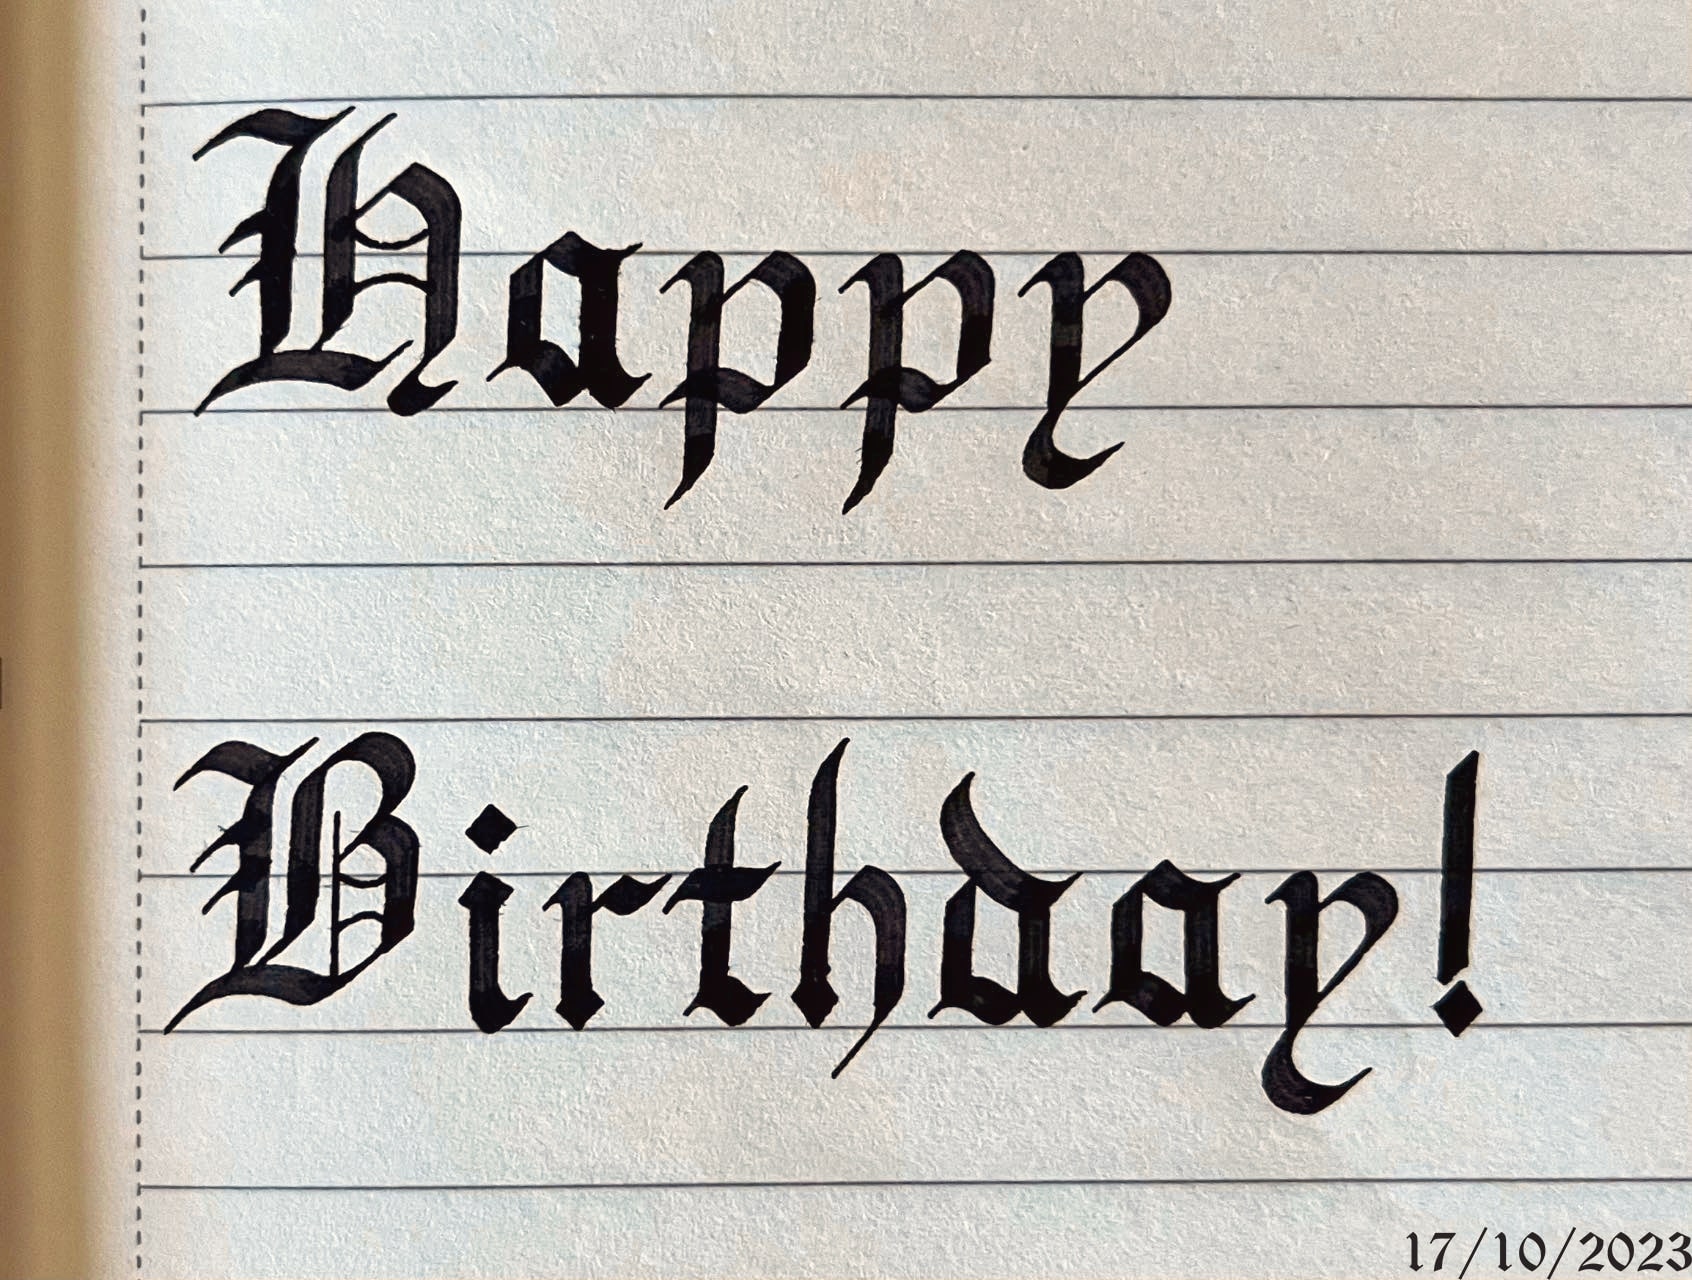 Happy
Birthday!
17/10/2023